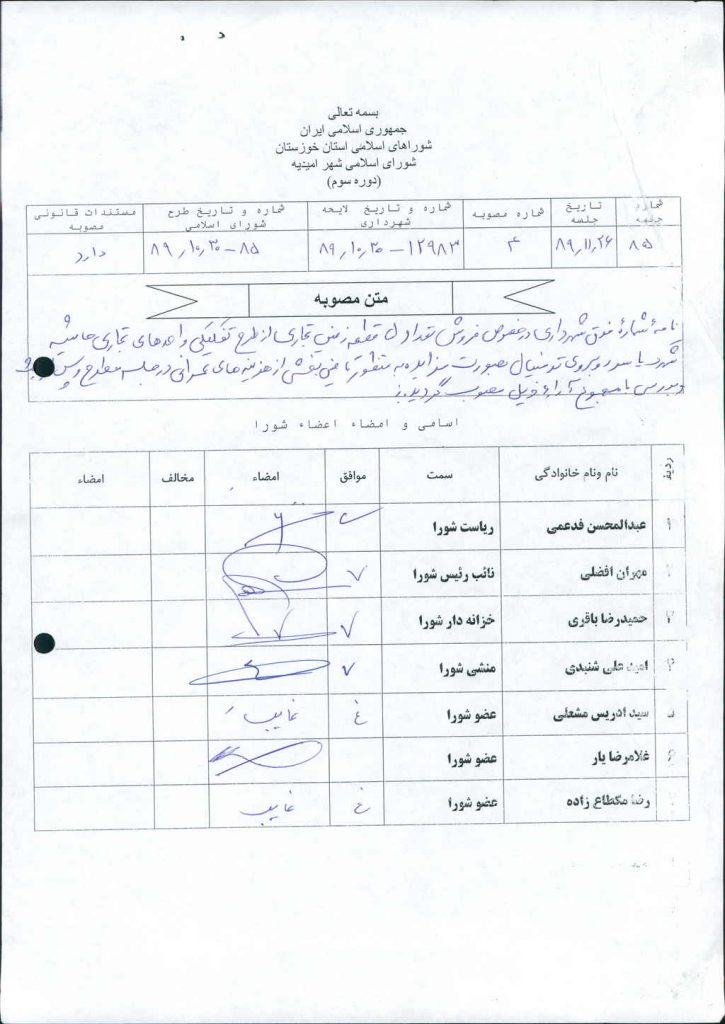 بسمه تعالی
جمهوری اسلامی ایران
شوراهای اسلامی استان خوزستان
شورای اسلامی شهر امینیه
(دوره سوم)
شماره جلسه
تاریخ جلسه
شماره مصوبه
شماره و تاریخ لایحه شهرداری
شماره و تاریخ طرح شورای اسلامی
مستندات قانونی مصوبه
۸۵
۸۹٫۱۱٫۲۶
۴
۱۲۹۸۳ – ۸۹٫۱۰٫۳۰
۸۵ – ۸۹٫۱۰٫۳۰
دارد
متن مصوبه
نامه شماره فوق شهرداری درخصوص فروش تعداد قطعه زمین تجاری از طرح تفکیکی واحدهای تجاری حاشیه
روبروی بصورت مزایده به منظور تامین بخشی از هزینه های عمرانی در جلسه مطرح و پس از
و بررسی با مجموع آراء ذیل مصوب گردید.
اسامی و امضاء اعضاء شورا
ردیف
نام ونام خانوادگی
سمت
موافق
امضاء
مخالف
امضاء
۱ عبدالمحسن فدعمی ریاست شورا
مهران افضلی نائب رئیس شورا
حمیدرضا باقری خزانه دار شورا
امین علی شنبدی منشی شورا
سید ادریس مشعلی عضو شورا غ غایب
۶ غلامرضا یار عضو شورا
رضا مگطاع زاده عضو شورا غ غایب